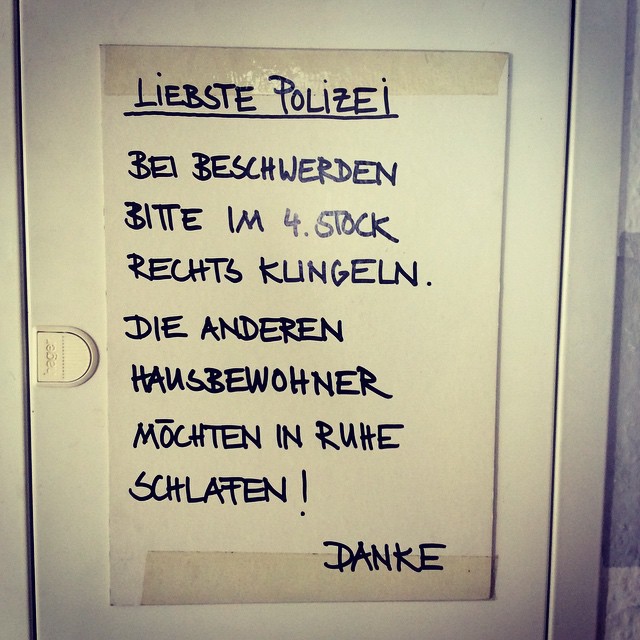 LIEBSTE POLIZEI
BEI BESCHWERDEN
BITTE IM 4. STOCK
RECHTS KLINGELN.
DIE ANDEREN
HAUSBEWOHNER
MÖCHTEN IN RUHE
SCHLAFEN!
DANKE
hager